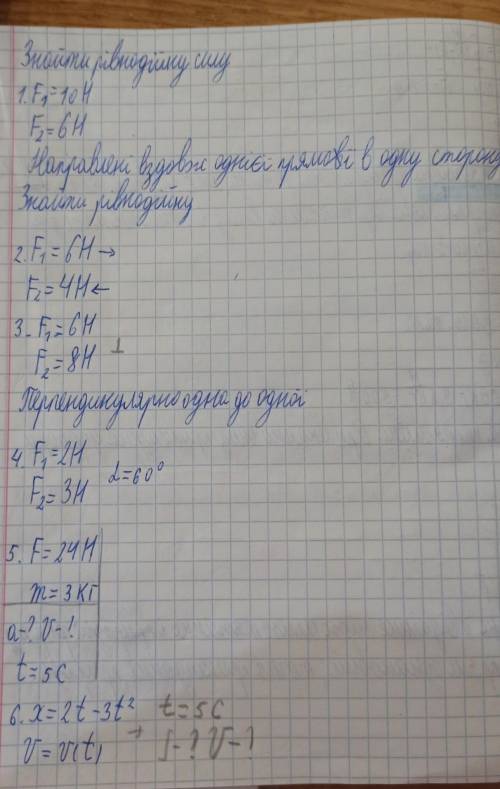 Знайти рівнодійну силу
1. F₁=10Н
F₂=6Н
Направлені вздовж однієї прямої в одну сторону
Знайти рівнодійну
2. F₁=6Н→
F₂=4Н←
3. F₁=6Н
F₂=8Н ⊥
Перпендикулярно одна до одної
4. F₁=2Н
F₂=3Н α=60°
5. F=24Н
m=3кг
a-? V-?
t=5с
6. x=2t-3t² t=5с
V=V(t) S-? V-?